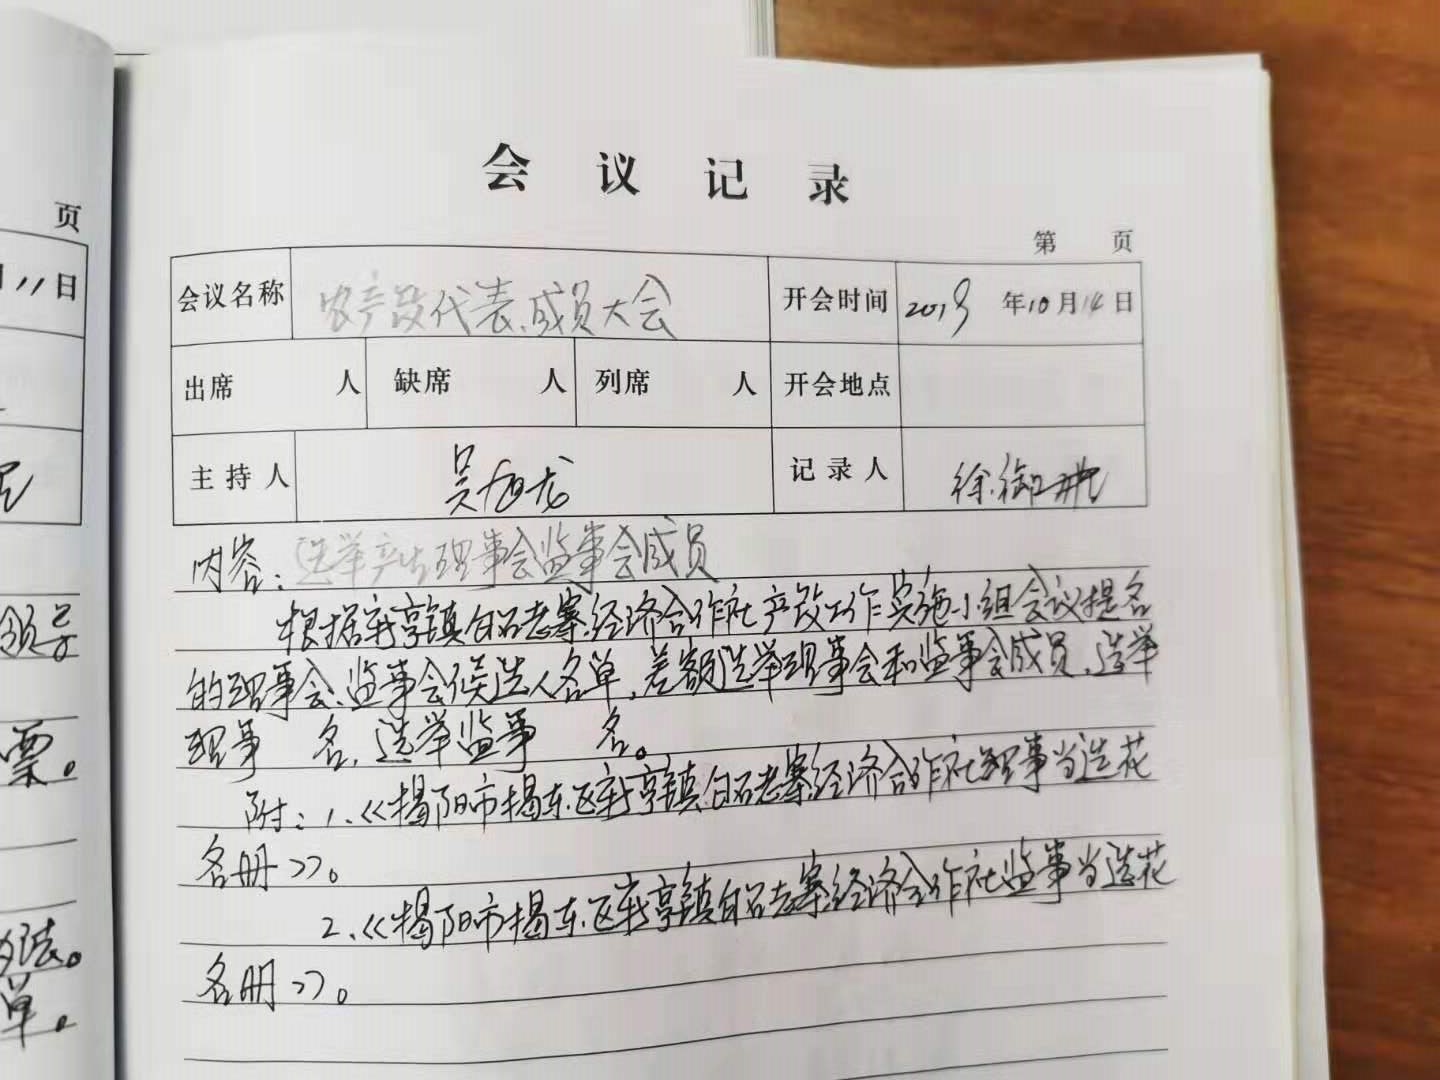 会议记录
第 页
会议名称 农产改代表、成员大会 开会时间 2019年10月14日
出席 人 缺席 人 列席 人 开会地点
主持人 吴旭龙 记录人 徐
内容：选举产生理事会监事会成员
根据新亨镇白石老寨经济合作社产改工作实施小组会议提名
的理事会、监事会候选人名单，差额选举理事会和监事会成员，选举
理事 名，选举监事 名。
附：1、《揭阳市揭东区新亨镇白石老寨经济合作社理事当选花
名册》。
2、《揭阳市揭东区新亨镇白石老寨经济合作社监事当选花
名册》。
页
月11日
领导
票。
法。
单。